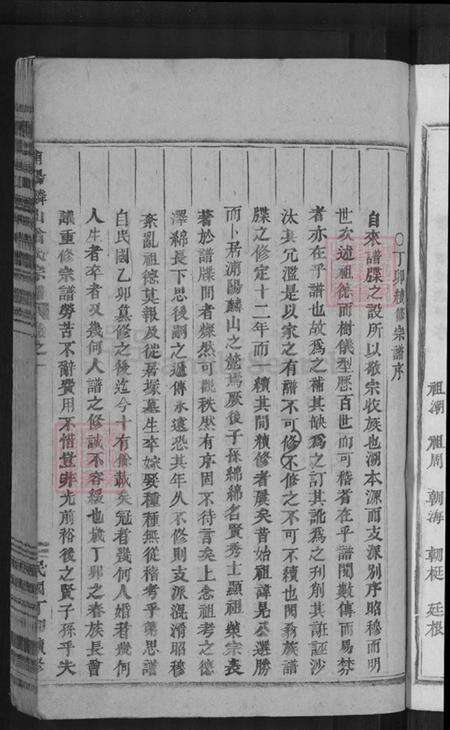 ○丁卯續修宗譜序
自來譜牒之設所以敬宗收族也溯本源而支派別序昭穆而明
世次述祖德而樹儀型歷百世而可稽者在乎譜閱數傳而易棼
者亦在乎譜也故為之補其缺為之訂其訛為之刋削其誑誣沙
汰其冗濫是以家之有譜不可不修修之不可不續也閱茲族譜
牒之修定十二年而一續其間續修者屢矣昔始祖諱 公選勝
而卜居浦陽麟山之麓焉厥後子孫綿綿名賢秀士顯祖榮宗表
著於譜牒間者燦然可觀秩然有序固不待言矣上念祖考之德
澤綿長下思後嗣之遞傳永遠恐其年久不修則支派混淆昭穆
紊亂祖德莫報及從居塚墓生卒嫁娶種種無從稽考乎爰思譜
自民國乙卯真修之後迄今十有餘載矣冠者幾何人婚者幾何
人生者卒者又幾何人譜之修誠不容緩也歲丁卯之春族長會
議重修宗譜勞苦不辭費用不惜豈非光前裕後之賢子孫乎夫
浦陽麟山 氏宗譜
民國丁卯續修
祖潮 祖周 朝海 朝梃 廷根